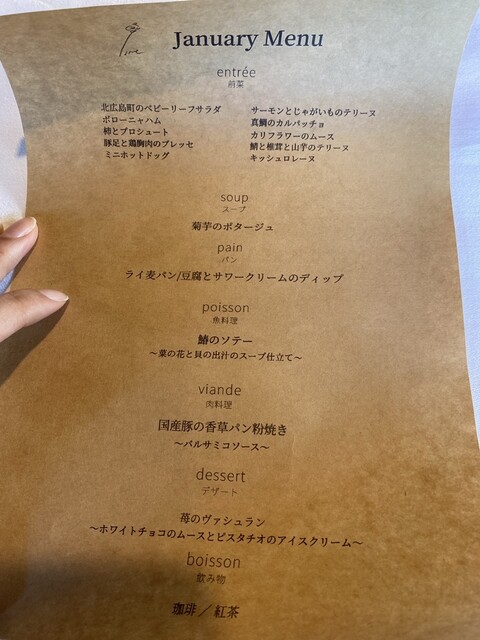 January Menu
entrée
前菜
北広島町のベビーリーフサラダ
ボローニャハム
柿とプロシュート
豚足と鶏胸肉のプレッセ
ミニホットドッグ
サーモンとじゃがいものテリーヌ
真鯛のカルパッチョ
カリフラワーのムース
鯖と椎茸と山芋のテリーヌ
キッシュロレーヌ
soup
スープ
菊芋のポタージュ
pain
パン
ライ麦パン/豆腐とサワークリームのディップ
poisson
魚料理
鰆のソテー
～菜の花と貝の出汁のスープ仕立て～
viande
肉料理
国産豚の香草パン粉焼き
～バルサミコソース～
dessert
デザート
苺のヴァシュラン
～ホワイトチョコのムースとピスタチオのアイスクリーム～
boisson
飲み物
珈琲 ／ 紅茶